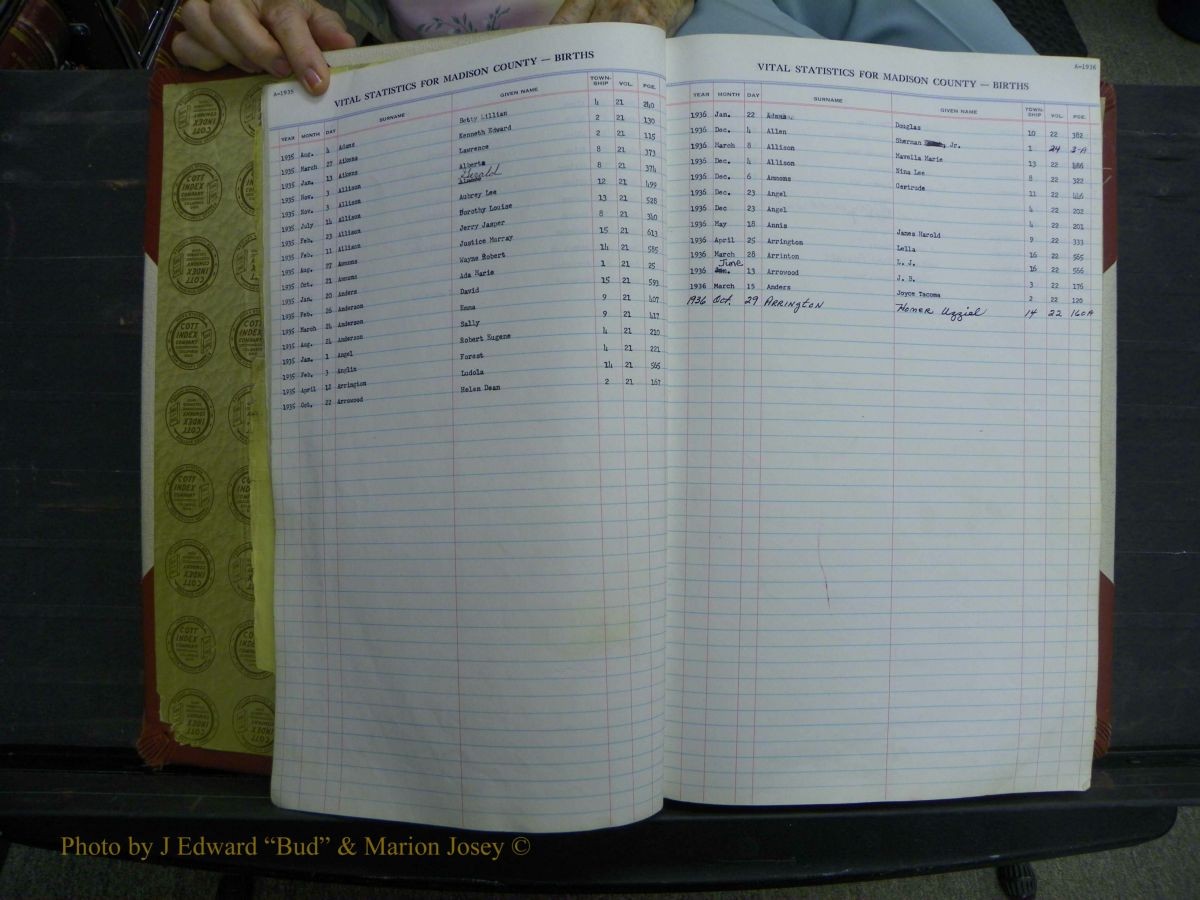 A-1935
VITAL STATISTICS FOR MADISON COUNTY — BIRTHS
YEAR MONTH DAY SURNAME GIVEN NAME TOWN-SHIP VOL. PGE.
1935 Aug. 4 Adams Betty Lillian 4 21 240
1935 March 27 Aikens Kenneth Edward 2 21 130
1935 Jan. 13 Aikens Lawrence 2 21 115
1935 Nov. 3 Allison Alberta 8 21 373
1935 Nov. 3 Allison Gerald 8 21 374
1935 July 14 Allison Aubrey Lee 12 21 499
1935 Feb. 23 Allison Dorothy Louise 13 21 528
1935 Feb. 11 Allison Jerry Jasper 8 21 340
1935 Aug. 27 Ammons Justice Murray 15 21 613
1935 Oct. 21 Ammons Wayne Robert 14 21 585
1935 Jan. 20 Anders Ada Marie 1 21 25
1935 Feb. 26 Anderson David 15 21 593
1935 March 24 Anderson Emma 9 21 407
1935 Aug. 24 Anderson Sally 9 21 417
1935 Jan. 1 Angel Robert Eugene 4 21 210
1935 Feb. 3 Anglin Forest 4 21 221
1935 April 12 Arrington Ludola 14 21 565
1935 Oct. 22 Arrowood Helen Dean 2 21 167
A-1936
VITAL STATISTICS FOR MADISON COUNTY — BIRTHS
YEAR MONTH DAY SURNAME GIVEN NAME TOWN-SHIP VOL. PGE.
1936 Jan. 22 Adams Douglas 10 22 382
1936 Dec. 4 Allen Sherman Jr. 1 24 2-A
1936 March 8 Allison Mavella Marie 13 22 486
1936 Dec. 4 Allison Nina Lee 8 22 322
1936 Dec. 6 Ammoms Gertrude 11 22 446
1936 Dec. 23 Angel 4 22 202
1936 Dec 23 Angel 4 22 201
1936 May 18 Annis James Harold 9 22 333
1936 April 25 Arrington Lella 16 22 565
1936 March 28 Arrinton L. J. 16 22 566
1936 June 13 Arrowood J. B. 3 22 176
1936 March 15 Anders Joyce Tacoma 2 22 120
1936 Oct. 29 Arrington Homer Uzziel 14 22 160A
COTT INDEX COMPANY
Photo by J Edward “Bud” & Marion Josey ©